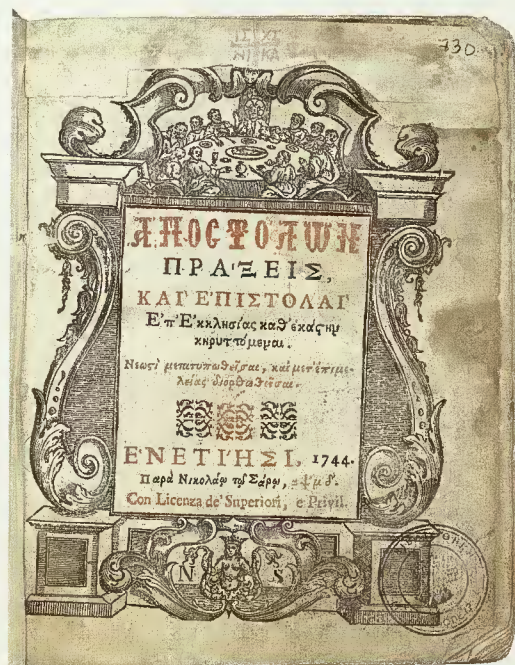 ΙΣ ΧΣ
ΝΙ ΚΑ
730
ἈΠΟϹΤΌΛΩΝ
ΠΡΑ'ΞΕΙΣ,
ΚΑΙ' Ε'ΠΙΣΤΟΛΑΙ'
Ε'π' Ε'κκλησίας καθ' ἑκάςην
κηρυττόμεναι.
Νεωςὶ μετατυπωθεῖσαι, καὶ μετ' ἐπιμε-
λείας διορθωθεῖσαι.
Ε'ΝΕΤΙ'ΗΣΙ, 1744.
Παρὰ Νικολάῳ τῷ Σάρῳ, αψμδ'.
Con Licenza de' Superiori, e Privil.
N S